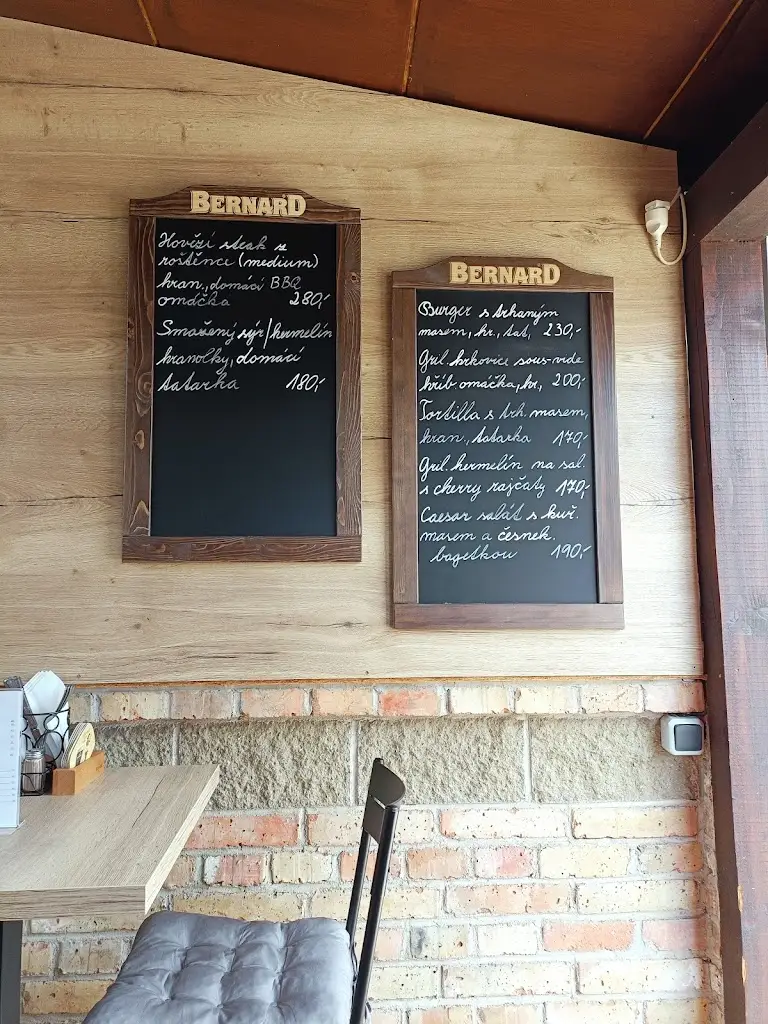 BERNARD
Hovězí steak z
roštěnce (medium)
hran., domácí BBQ
omáčka 280,-
Smažený sýr/hermelín
hranolky, domácí
tatarka 180,-
BERNARD
Burger s trhaným
masem, hr., tat, 230,-
Gril. krkovice sous-vide
hřib omáčka, hr, 200,-
Tortilla s trh. masem,
hran., tatarka 170,-
Gril. hermelín na sal.
s cherry rajčaty 170,-
Caesar salát s kuř.
masem a česnek.
bagetkou 190,-